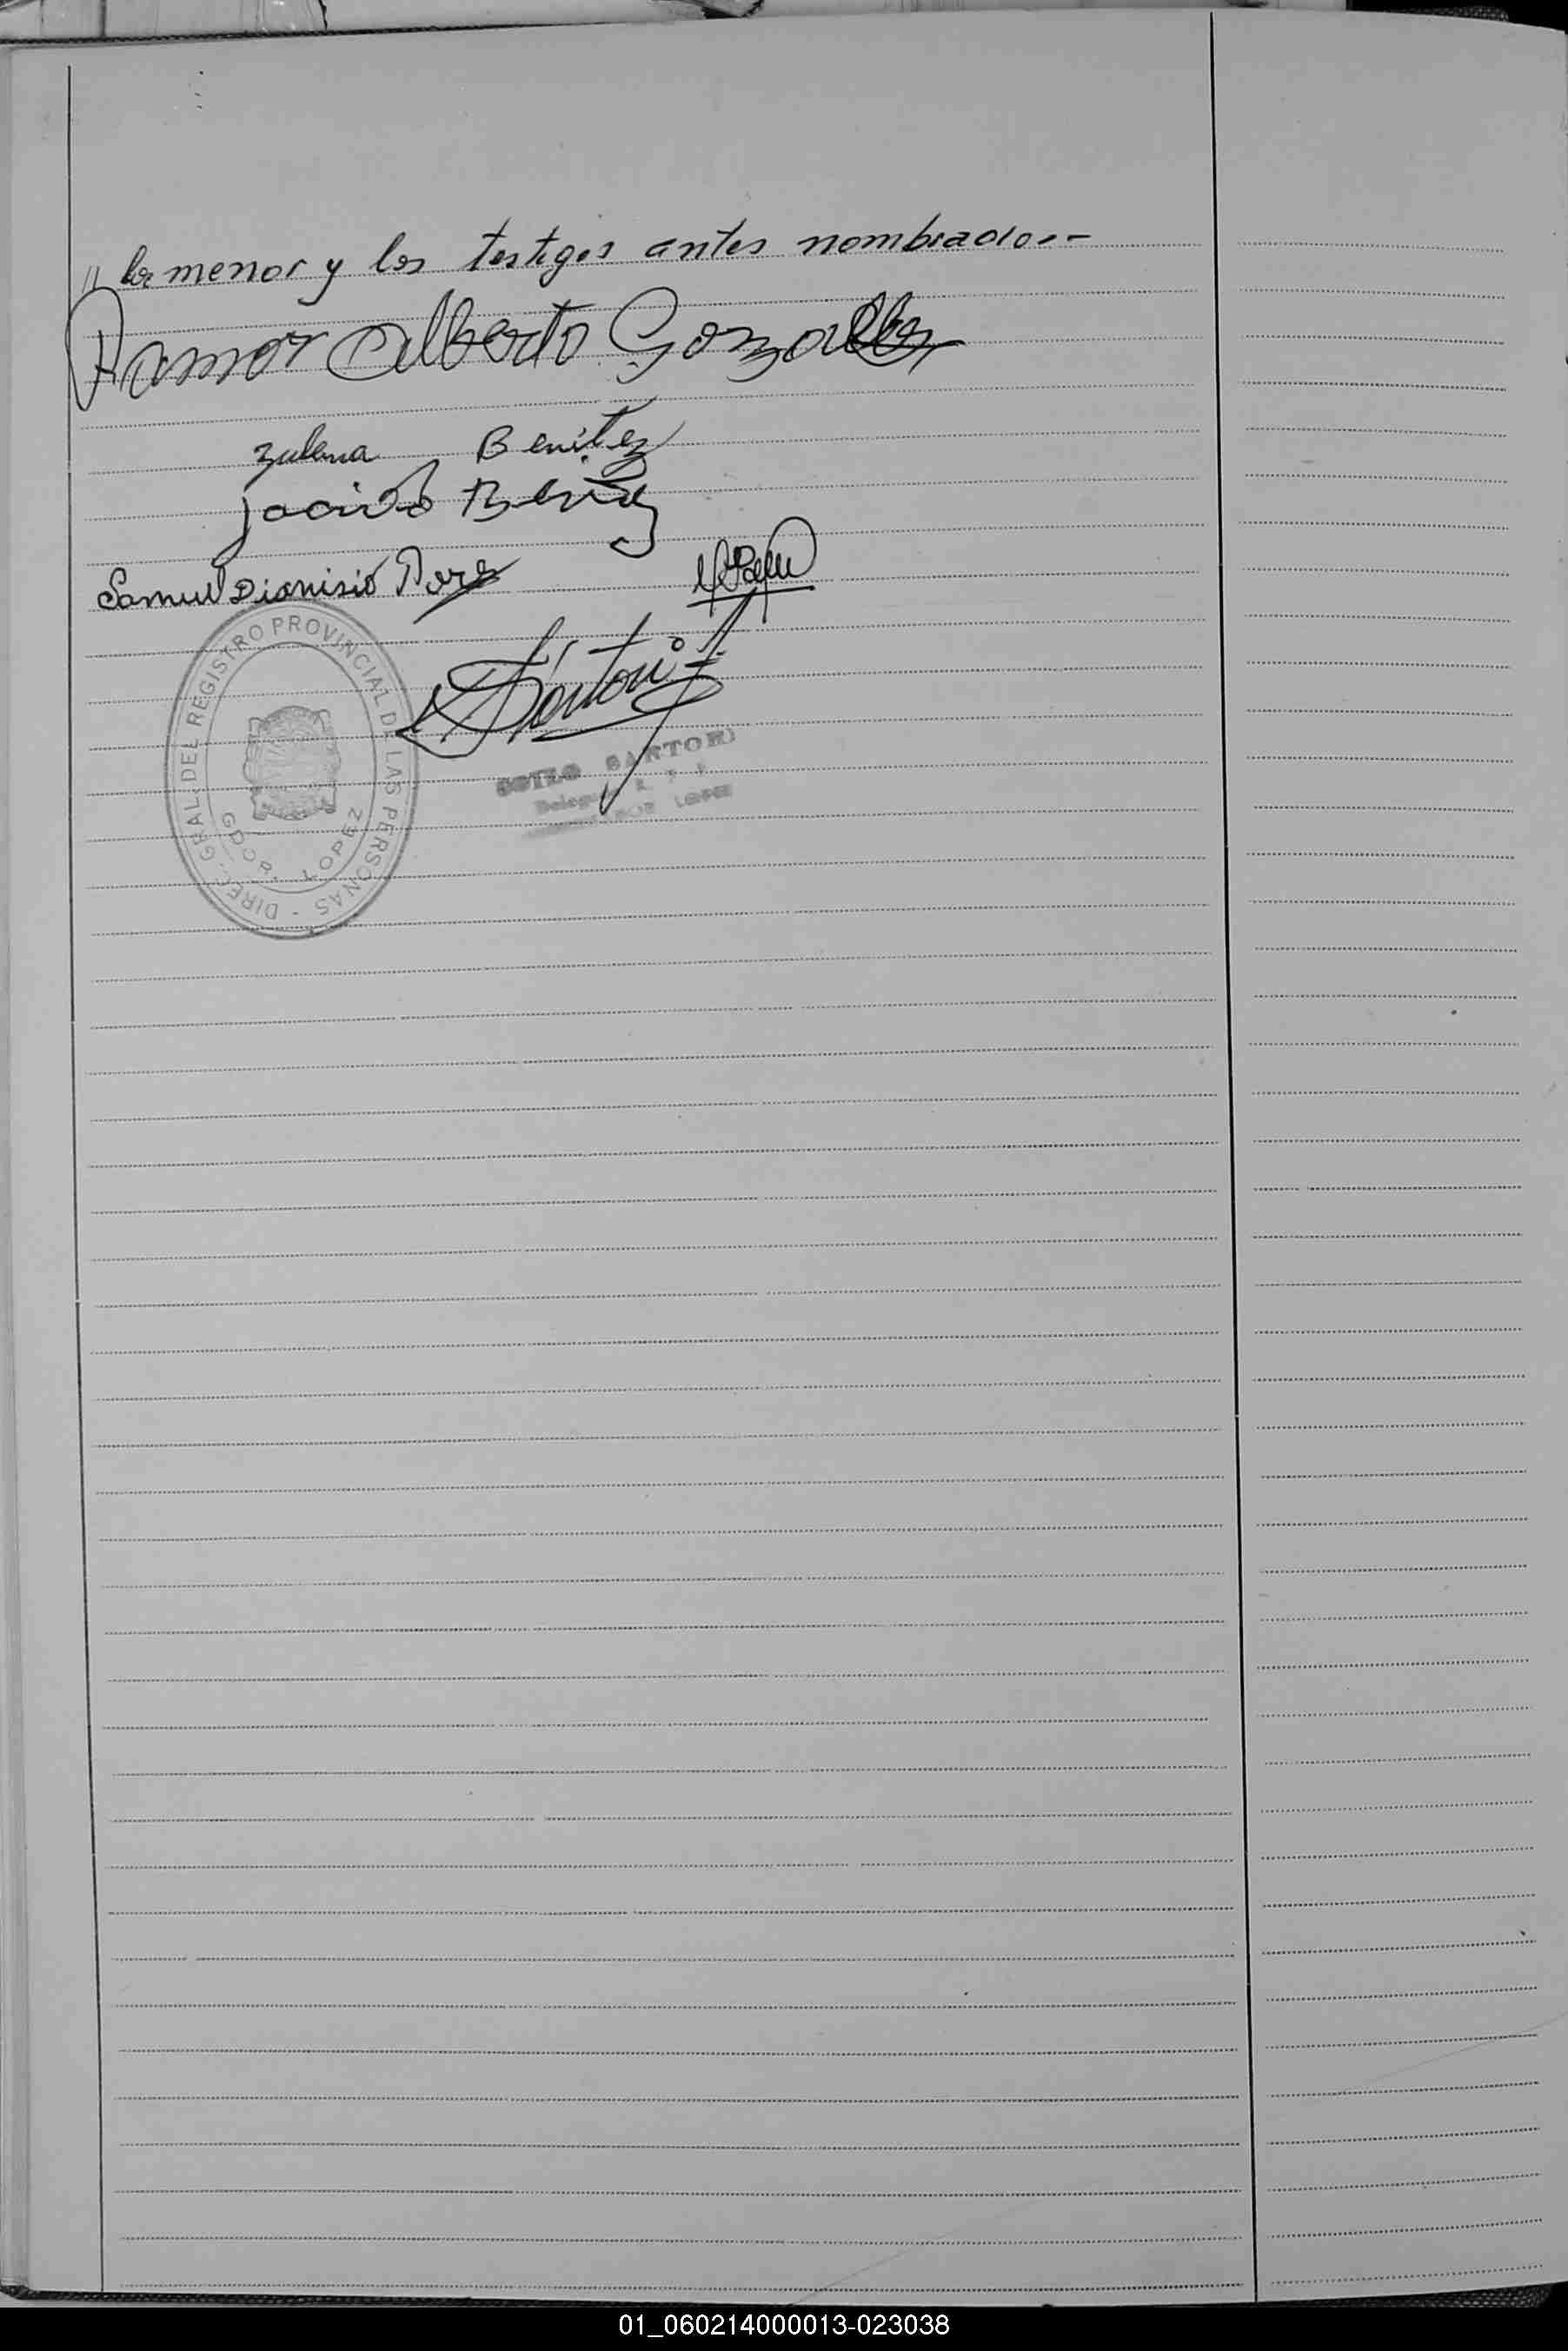 // la menor y los testigos antes nombrados.-
Ramon Alberto Gonzalez
Zulema Benitez
Jacinto Benitez
Samuel Dionisio
Sartori
DIREC. GRAL. DEL REGISTRO PROVINCIAL DE LAS PERSONAS -
GDOR. LOPEZ
SARTORI
LOPEZ
01_060214000013-023038